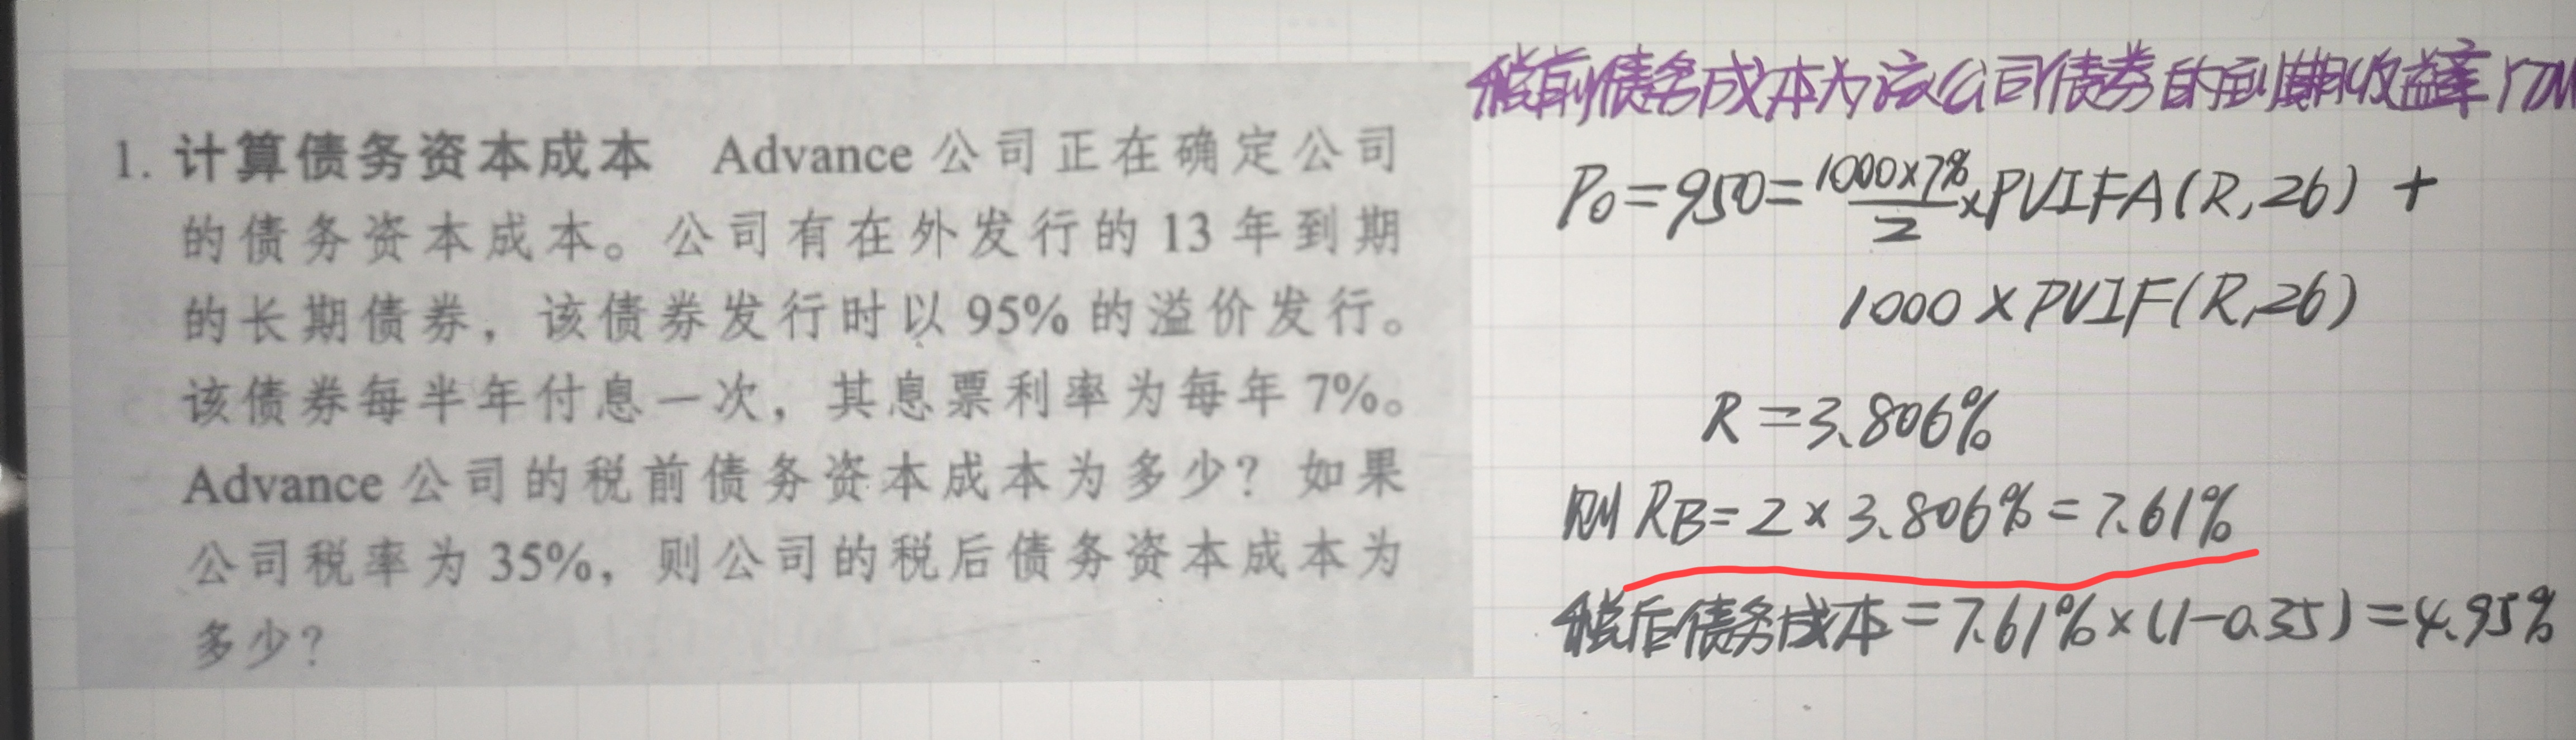 1. 计算债务资本成本 Advance 公司正在确定公司
的债务资本成本。公司有在外发行的 13 年到期
的长期债券，该债券发行时以 95% 的溢价发行。
该债券每半年付息一次，其息票利率为每年 7%。
Advance 公司的税前债务资本成本为多少？如果
公司税率为 35%，则公司的税后债务资本成本为
多少？
税前债务成本为该公司债券的到期收益率YTM
P₀=950=1000×7%/2×PVIFA(R,26)+
1000×PVIF(R,26)
R=3.806%
则 RB=2×3.806%=7.61%
税后债务成本=7.61%×(1-0.35)=4.95%